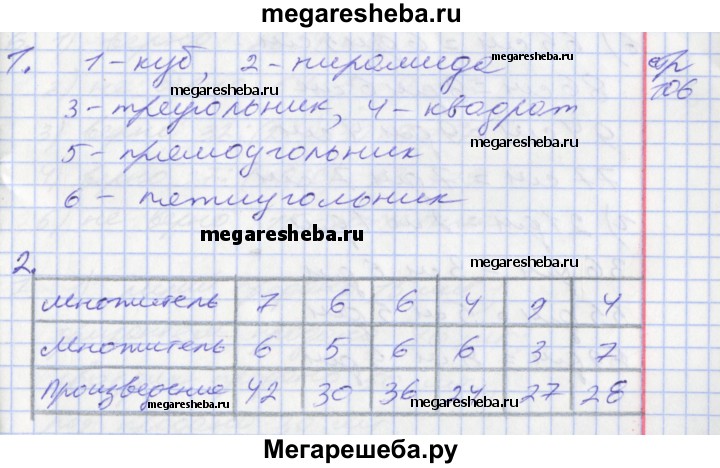 megaresheba.ru
1. 1 - куб, 2 - пирамида
megaresheba.ru
стр 106
megaresheba.ru
3 - треугольник, 4 - квадрат
5 - прямоугольник
megaresheba.ru
6 - пятиугольник
megaresheba.ru
2.
megaresheba.ru
множитель 7 6 6 4 9 4
множитель 6 5 6 6 3 7
произведение 42 30 36 24 27 28
megaresheba.ru megaresheba.ru
Мегарешеба.ру